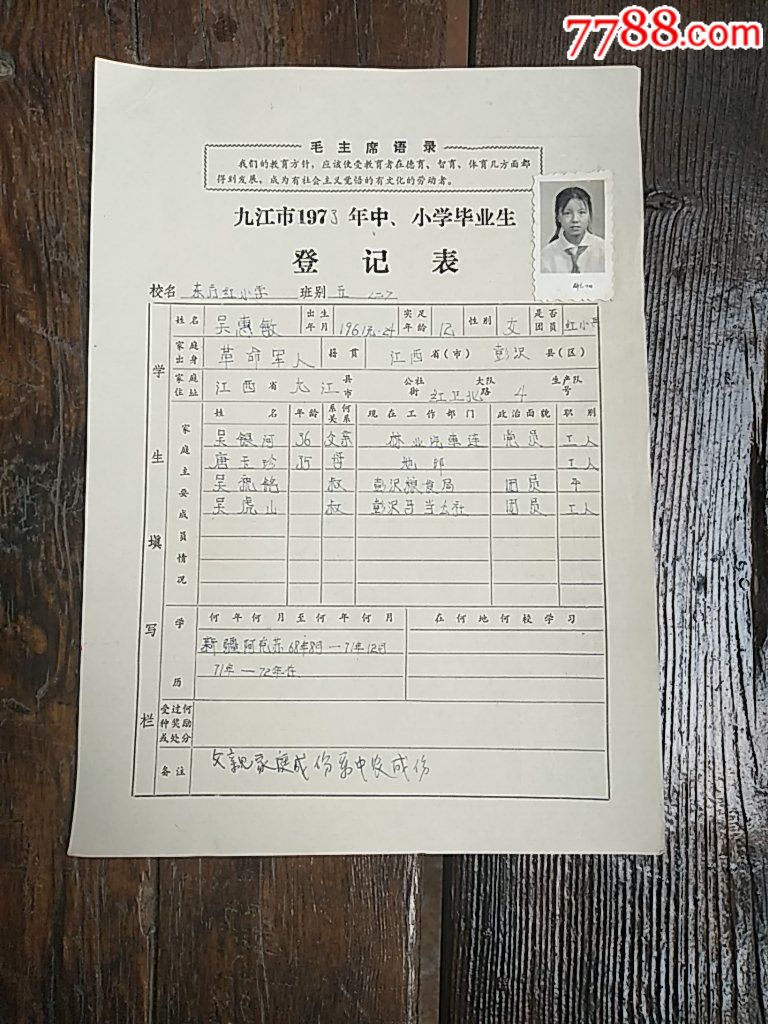 7788.com
毛主席语录
我们的教育方针，应该使受教育者在德育、智育、体育几方面都
得到发展，成为有社会主义觉悟的有文化的劳动者。
九江市1973年中、小学毕业生
登记表
校名 东方红小学 班别 五
姓名 吴惠敏 出生年月 1961 实足年龄 12 性别 女 是否团员 红小兵
家庭出身 革命军人 籍贯 江西省(市) 彭泽县(区)
家庭住址 江西省九江县市 公社街 红卫北 大队路 4 生产队号
学生填写栏
家庭主要成员情况
姓名 年龄 系何关系 现在工作部门 政治面貌 职别
吴银河 36 父亲 汽车连 党员 工人
唐玉珍 35 母 工人
吴 叔 彭泽粮食局 团员 干
吴虎山 叔 彭泽马当公社 团员 工人
学历
何年何月至何年何月 在何地何校学习
新疆阿克苏68年8月—71年12月
71年—72年在
受过何种奖励或处分
备注 父亲家庭成份系中农成份